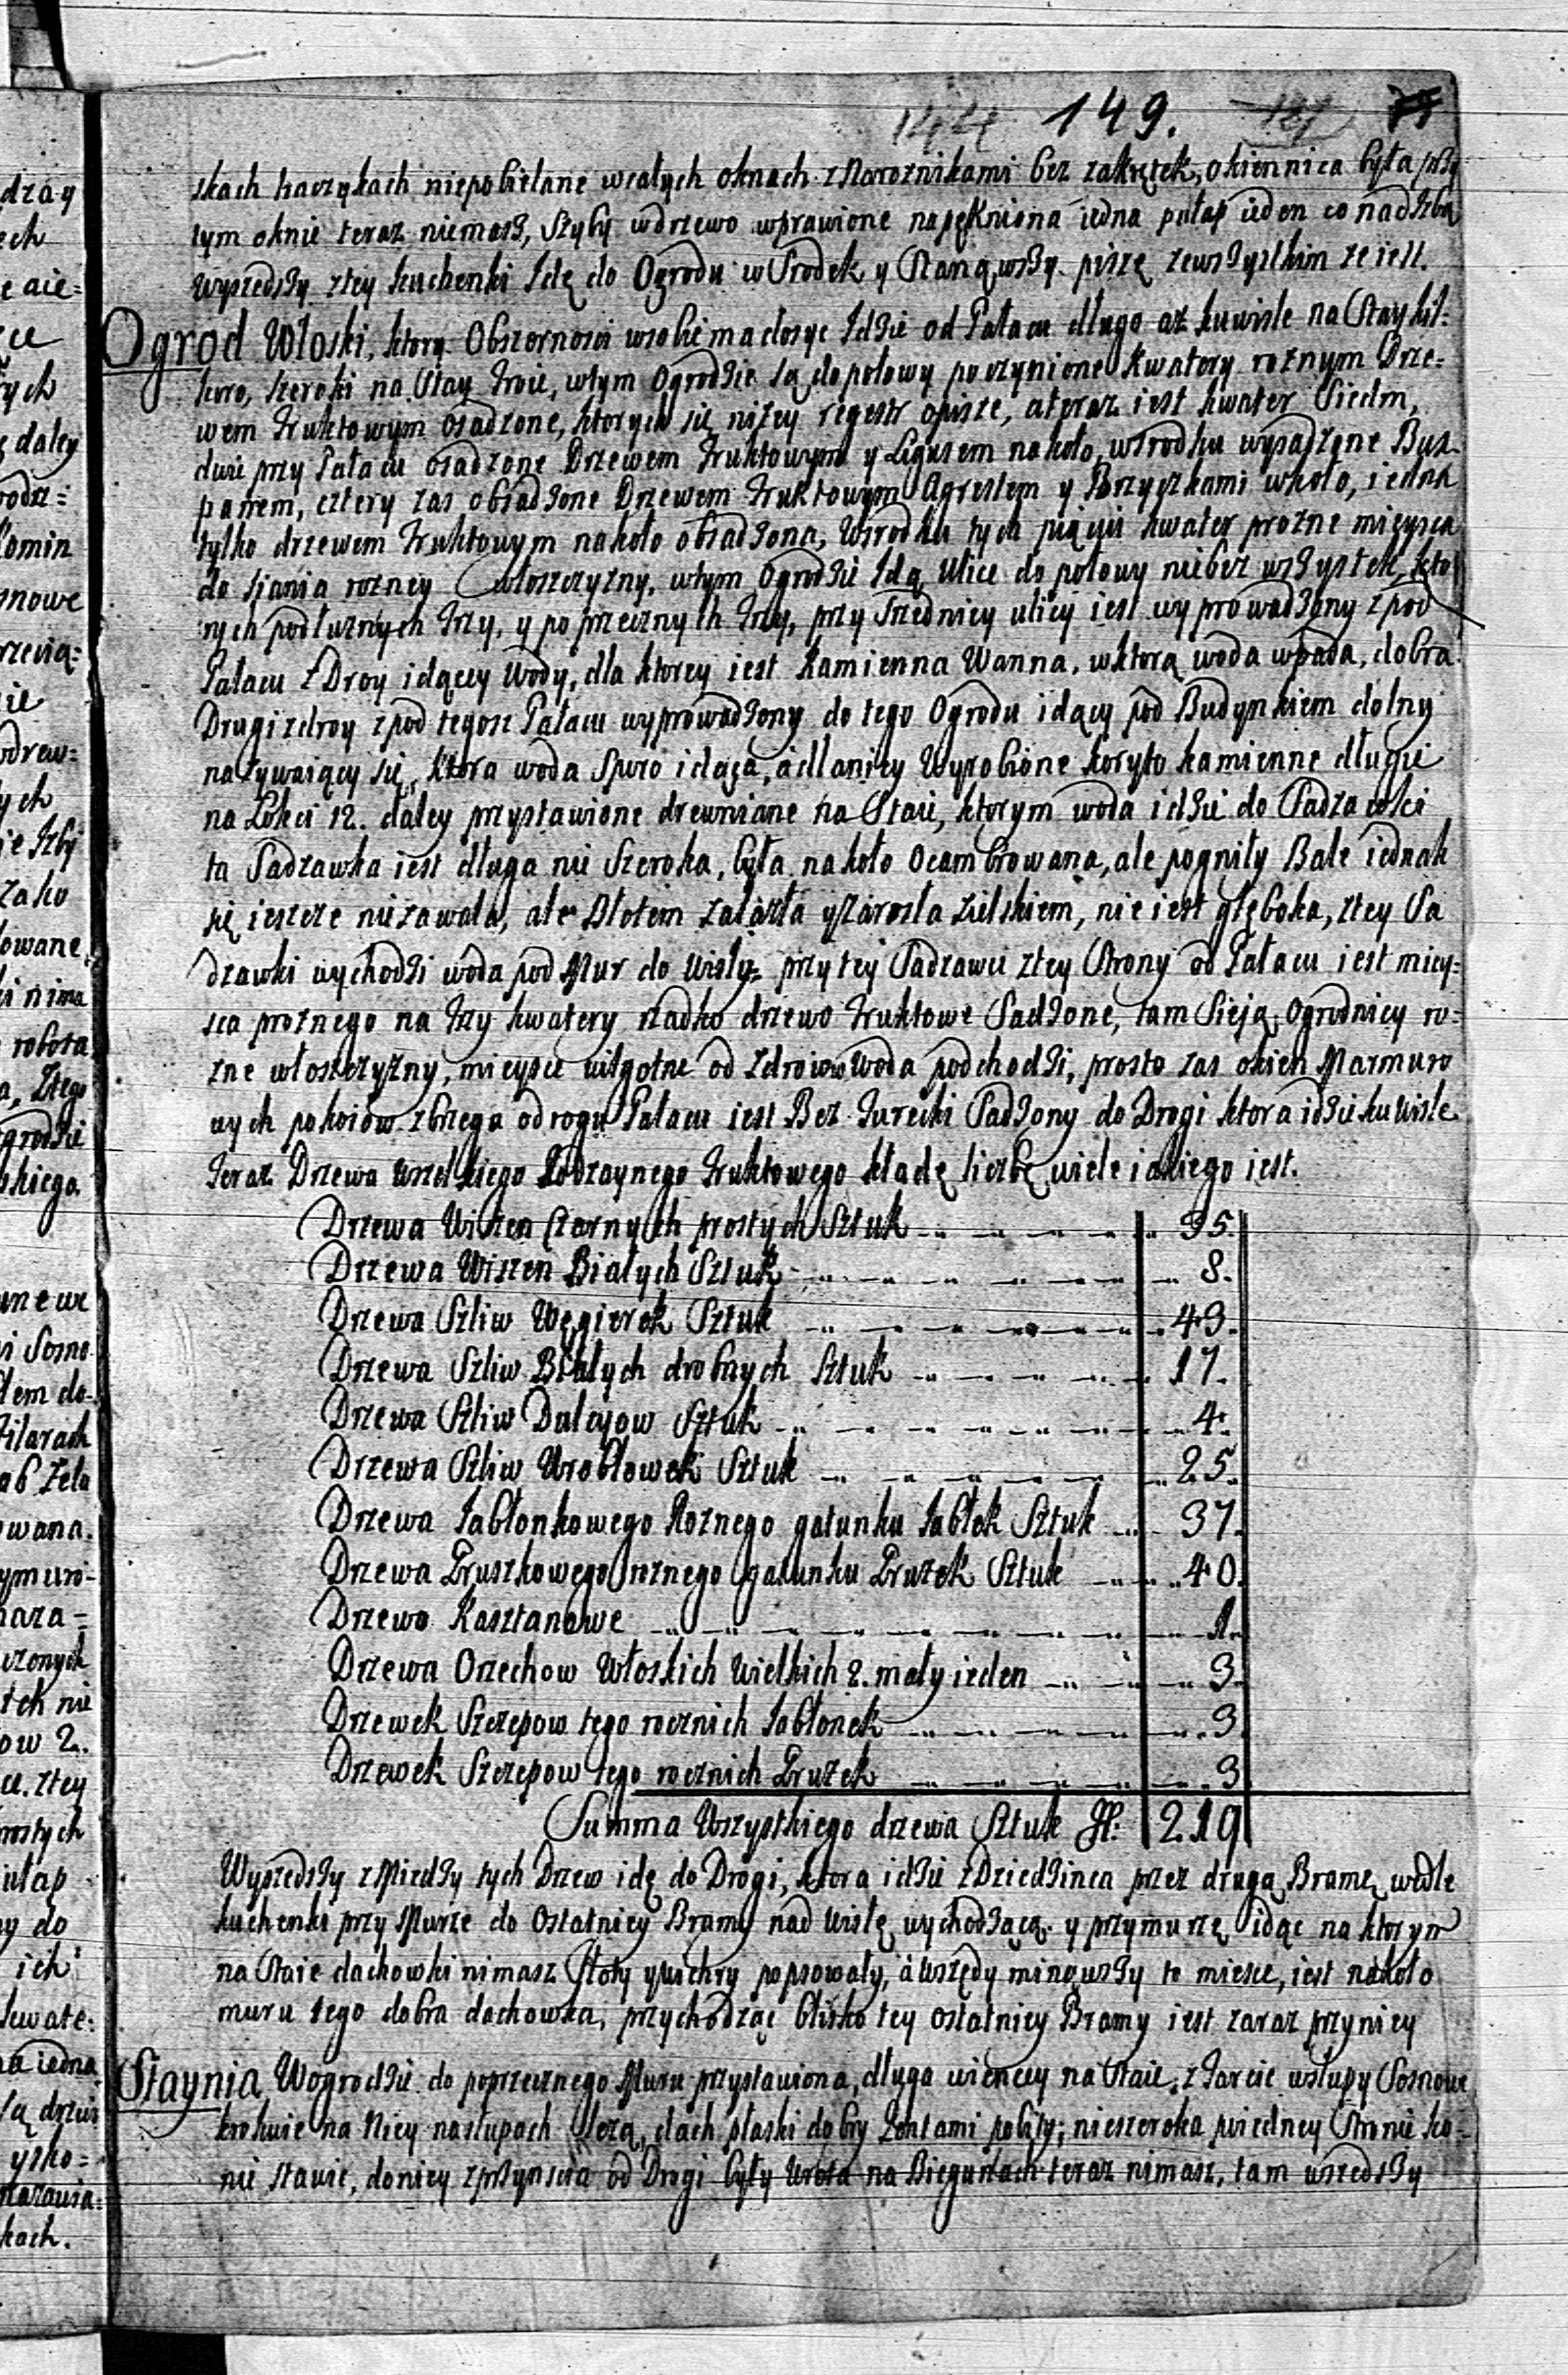 149.
skach haczykach niepobielane wcałych oknach z Naroznikami bez zakrętek, okiennica była przy
tym oknie teraz niemasz, Szyby wdrzewo wprawione napękniona iedna pułap ieden co nad Izbą
wyszedszy ztey kuchenki Idę do Ogrodu w Srodek y Stanąwszy piszę zewszystkim ze iest.
Ogrod Włoski, ktory Obszernosci wsobie ma dosyc Idzie od Pałacu długo az kuwisle na Stay kil:
koro, szeroki na Stay troie, wtym Ogrodzie są do połowy poczynione kwatery roznym Drze:
wem fruktowym osadzone, ktorych się nizey regestr opisze, ateraz iest kwater Siedm,
dwie przy Pałacu osadzone Drzewem fruktowym y Ligustem nakoło, wsrodku wysadzone Buk
panem, cztery zas obsadzone Drzewem fruktowym Agrestem y Porzyczkami wkoło, iedna
tylko drzewem fruktowym nakoło obsadzona, Wsrodku tych pięciu kwater prozne mieysca
do siania rozney włoszczyzny. wtym Ogrodzie Idą Ulice do połowy niebez wszystek, kto
rych podłuznych trzy, y poprzecznych trzy, przy Sredniey ulicy iest wyprowadzony z pod
Pałacu Zdroy idącey Wody, dla ktorey iest Kamienna Wanna, wktorą woda wpada, dobra.
Drugi zdroy z pod tegosz Pałacu wyprowadzony do tego Ogrodu idący pod Budynkiem dolny
nazywaiący się, ktora woda Sporo idąca, adlaniey Wyrobione koryto kamienne długie
na Łokci 12. daley przystawione drewniane na Staie, ktorym woda idzie do Sadzawki
ta Sadzawka iest długa nie Szeroka, była nakoło ocambrowana, ale pogniły Bale iednak
się ieszcze niezawala, ale błotem zalazła y zarosła zielskiem, nie iest głęboka, ztey Sa
dzawki wychodzi woda pod Mur do Wisły. przy tey Sadzawce ztey Strony od Pałacu iest miey:
sca proznego na trzy kwatery rzadko drzewo fruktowe Sadzone, tam Sieją Ogrodnicy ro:
zne włoszczyzny, mieysce wilgotne od zdroiow woda podchodzi, prosto zas okien Marmuro
wych pokoiow zbrzega od rogu Pałacu iest Bez Turecki Sadzony do Drogi ktora idzie ku Wisle.
Teraz Drzewa wszelkiego Rodzaynego fruktowego kładę liczbę wiele iakiego iest.
Drzewa Wiszen Czarnych prostych Sztuk 35.
Drzewa Wiszen Białych Sztuk 8.
Drzewa Szliw Węgierek Sztuk 43.
Drzewa Szliw Białych drobnych Sztuk 17.
Drzewa Szliw Dulcyow Sztuk 4.
Drzewa Szliw Wroblowek Sztuk 25.
Drzewa Jabłonkowego Roznego gatunku Jabłek Sztuk 37.
Drzewa Gruszkowego roznego gatunku Gruszek Sztuk 40.
Drzewo Kasztanowe 1.
Drzewa Orzechow Włoskich Wielkich 2. mały ieden 3.
Drzewek Szczepow tego rocznich Jabłonek 3.
Drzewek Szczepow tego rocznich Gruszek 3.
Summa Wszystkiego drzewa Sztuk 219
Wyszedszy z Miedzy tych Drzew idę do Drogi, ktora idzie z Dziedzinca przez drugą Bramę wedle
kuchenki przy Murze do Ostatniey Bramy nad Wisłę wychodzącą y przymurzę idąc na ktorym
na Staie dachowki nimasz Słoty y wichry popsowały, a wszędy minąwszy to miesce, iest nakoło
muru tego dobra dachowka, przychodząc blisko tey ostatniey Bramy iest zaraz przyniey
Staynia Wogrodzie do poprzecznego Muru przystawiona, długa wiencey na Staie, z Tarcic wsłupy Sosnowe
krokwie na Niey nasłupach lezą, dach płaski dobry gontami pobity, nieszeroka wiedney Stronie ko-
nie stawie, doniey zprzynscia od Drogi były Wrota na Biegunach teraz nimasz, tam wszedszy